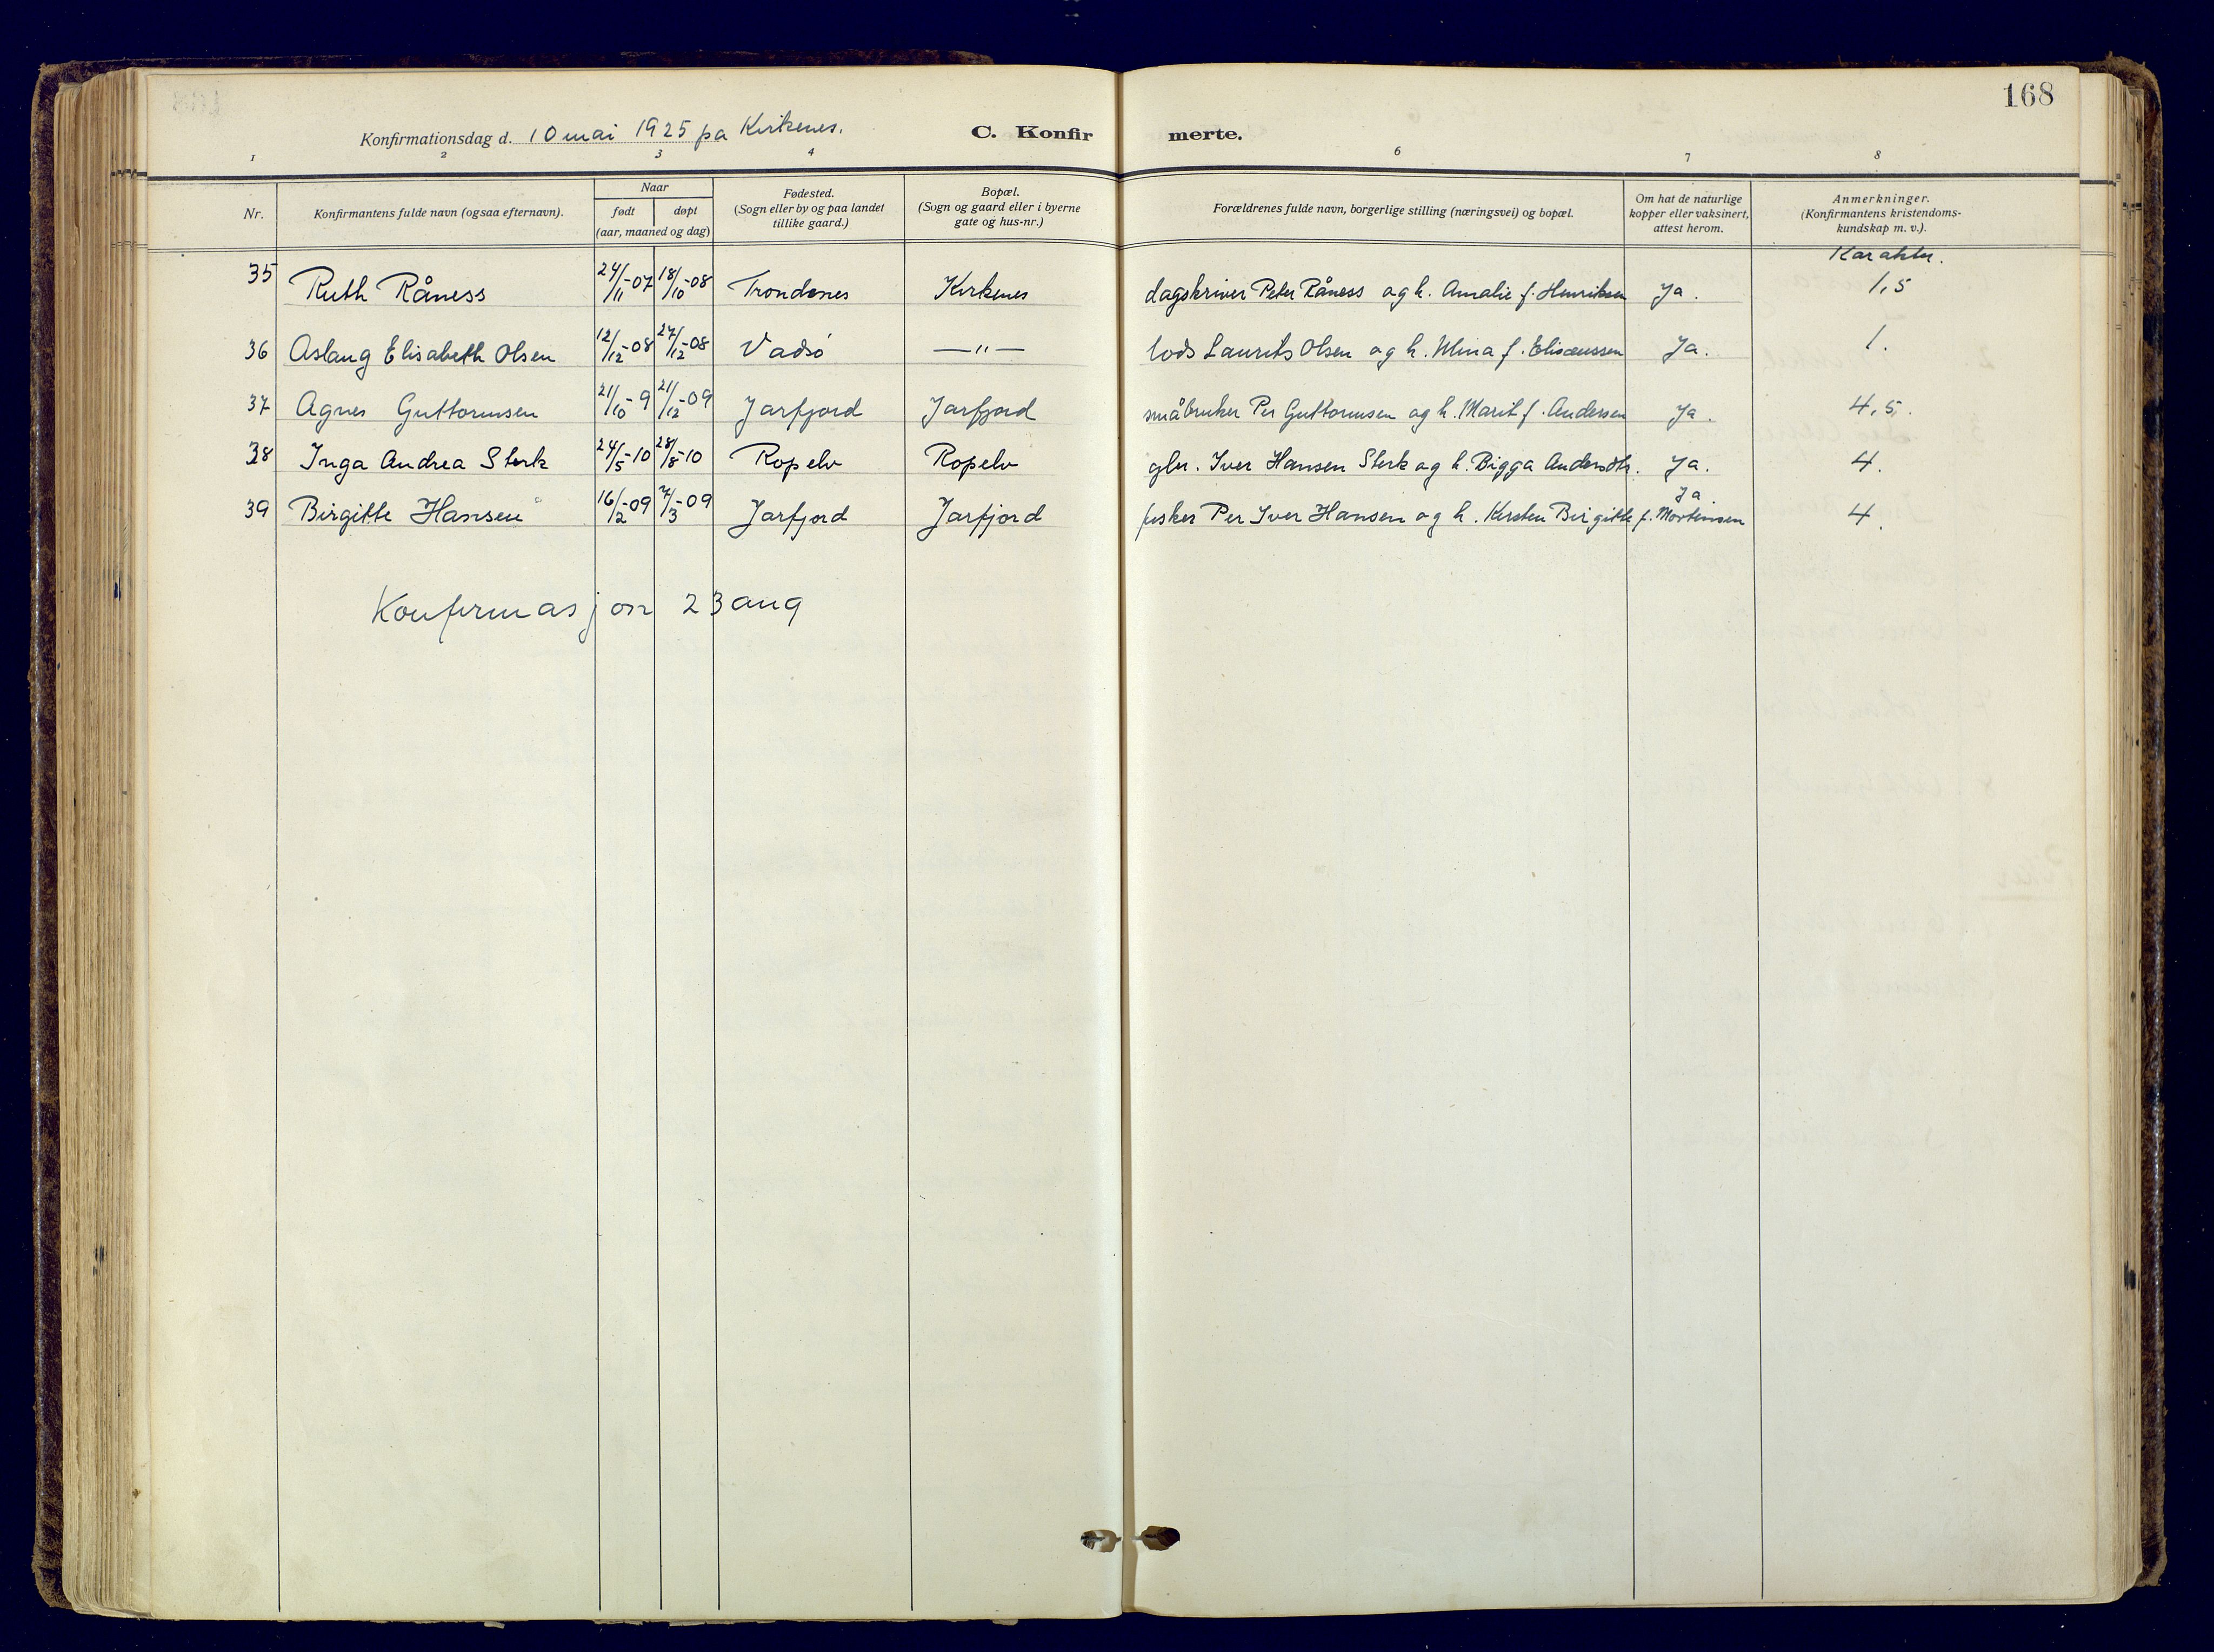 168
Konfirmationsdag d. 10 mai 1925 på Kirkenes. C. Konfirmerte.
1 2 3 4 6 7 8
Nr. Konfirmantens fulde navn (ogsaa efternavn). Naar født døpt (aar, maaned og dag) Fødested. (Sogn eller by og paa landet tillike gaard.) Bopæl. (Sogn og gaard eller i byerne gate og hus-nr.) Forældrenes fulde navn, borgerlige stilling (næringsvei) og bopæl. Om hat de naturlige kopper eller vaksinert, attest herom. Anmerkninger. (Konfirmantens kristendoms-kundskap m. v.).
Karakter.
35 Ruth Råness 24/11-07 18/10-08 Trondenes Kirkenes dagskriver Peter Råness og h. Amalie f. Henriksen Ja. 1,5
36 Aslaug Elisabeth Olsen 12/12-08 27/12-08 Vadsö —"— lods Laurits Olsen og h. f. Elisæussen Ja. 1.
37 Agnes Guttormsen 21/10-9 21/12-09 Jarfjord Jarfjord småbruker Per Guttormsen og h. Marit f. Andersen Ja. 4,5.
38 Inga Andrea Sterk 24/5-10 28/8-10 Ropelv Ropelv gbr. Iver Hansen Sterk og h. Bigga Andersdtr. Ja. 4.
39 Birgitte Hansen 16/2-09 7/3-09 Jarfjord Jarfjord fisker Per Iver Hansen og h. Kirsten Birgitte f. Mortensen Ja 4.
Konfirmasjon 23 aug